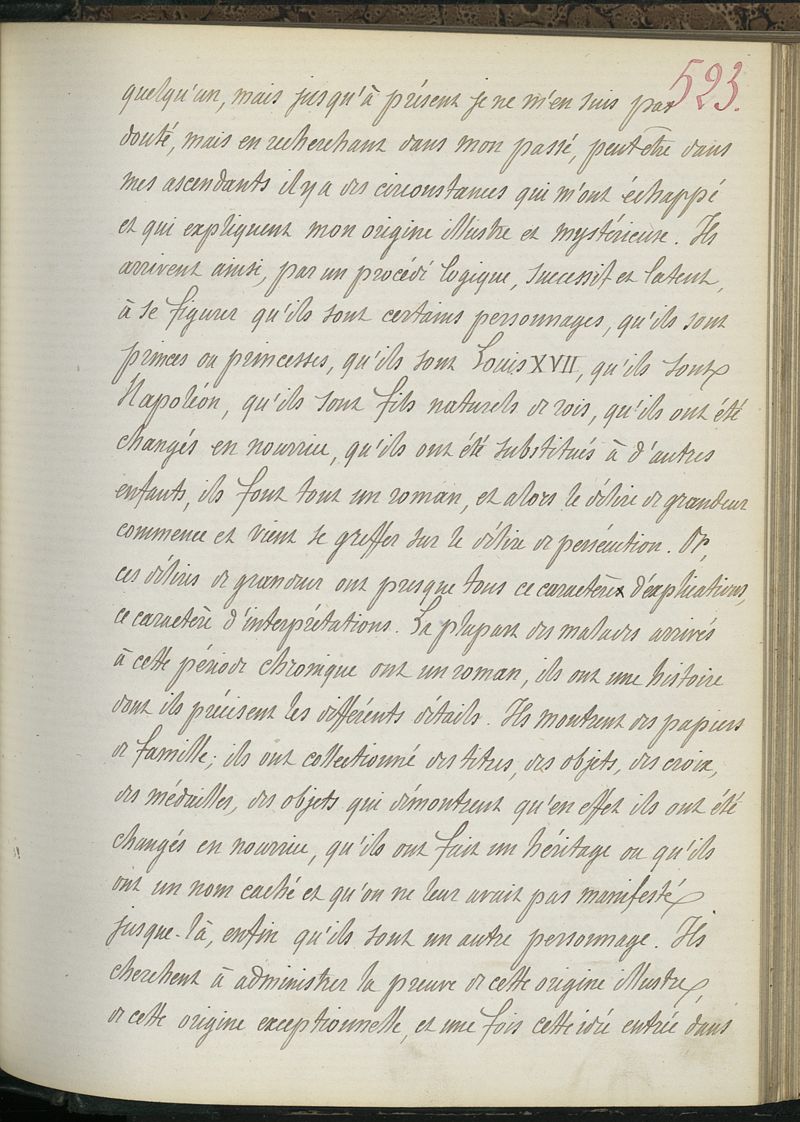 523.
quelqu'un, mais jusqu'à présent je ne m'en suis pas
douté, mais en recherchant dans mon passé, peut être dans
mes ascendants il y a des circonstances qui m'ont échappé
et qui expliquent mon origine illustre et mystérieuse. Ils
arrivent ainsi, par un procédé logique, successif et latent,
à se figurer qu'ils sont certains personnages, qu'ils sont
princes ou princesses, qu'ils sont Louis XVII, qu'ils sont
Napoléon, qu'ils sont fils naturels de rois, qu'ils ont été
changés en nourrice, qu'ils ont été substitués à d'autres
enfants, ils font tout un roman, et alors le délire de grandeur
commence et vient se greffer sur le délire de persécution. Or,
ces délires de grandeur ont presque tous ce caractère d'explications,
ce caractère d'interprétations. La plupart des malades arrivés
à cette période chronique ont un roman, ils ont une histoire
dont ils précisent les différents détails. Ils montrent des papiers
de famille; ils ont collectionné des titres, des objets, des croix,
des médailles, des objets qui démontrent qu'en effet ils ont été
changés en nourrice, qu'ils ont fait un héritage ou qu'ils
ont un nom caché et qu'on ne leur avait pas manifesté
jusque-là, enfin qu'ils sont un autre personnage. Ils
cherchent à administrer la preuve de cette origine illustre,
de cette origine exceptionnelle, et une fois cette idée entrée dans